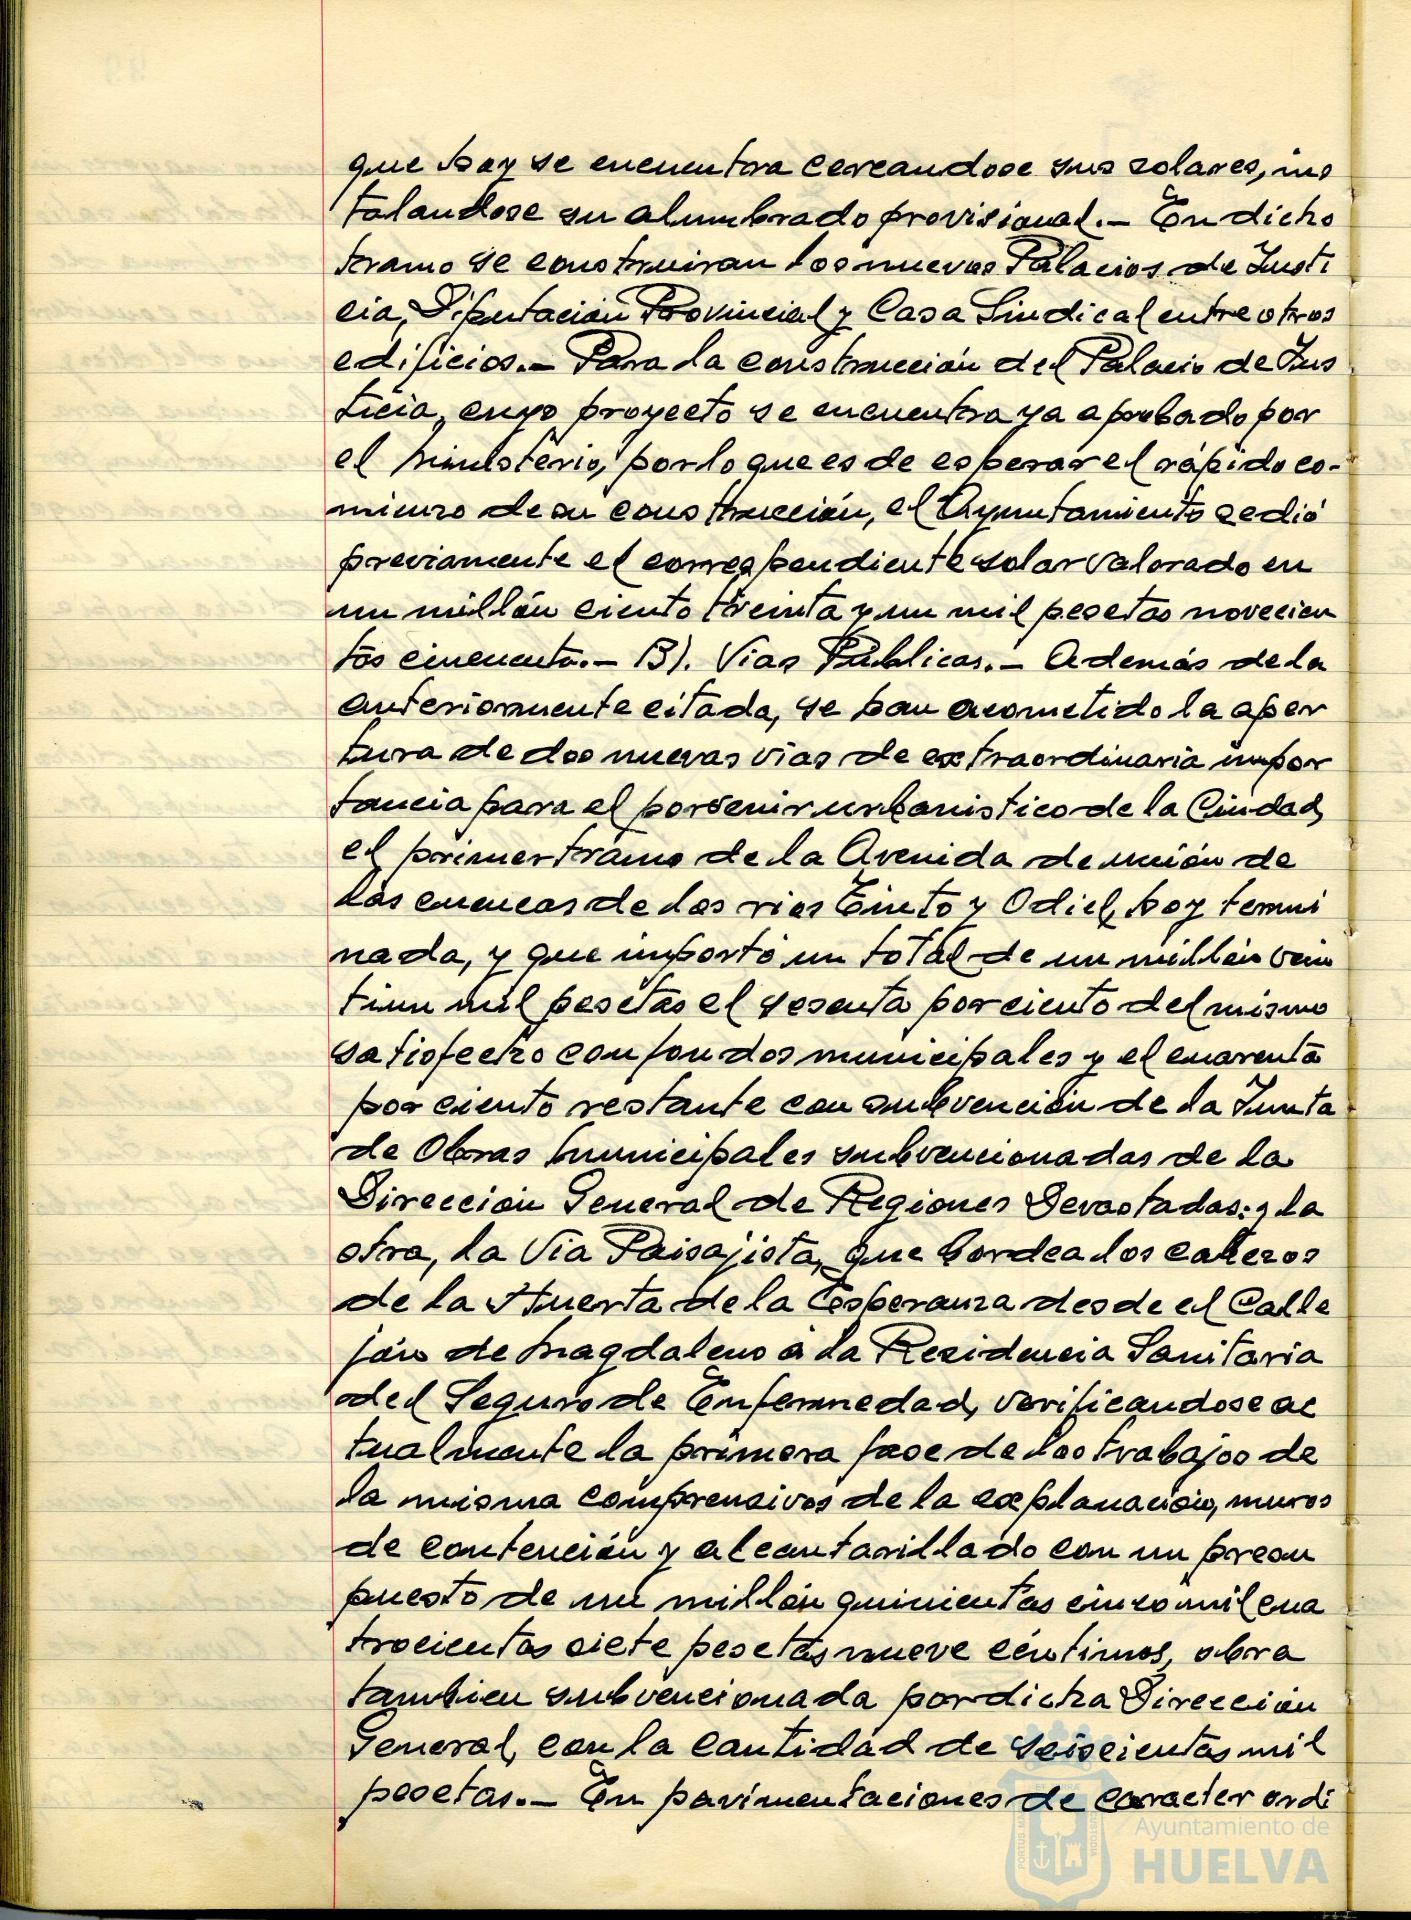 que hoy se encuentra cercandose sus solares, ins
talandose su alumbrado provisional.- En dicho
tramo se construiran los nuevos Palacios de Justi
cia, Diputación Provincial y Casa Sindical entre otros
edificios.- Para la construcción del Palacio de Jus
ticia, cuyo proyecto se encuentra ya aprobado por
el Ministerio, por lo que es de esperar el rápido co-
mienzo de su construcción, el Ayuntamiento cedió
previamente el correspondiente solar valorado en
un millón ciento treinta y un mil pesetas novecien
tas cincuenta.- B). Vias Públicas.- Además de la
anteriormente citada, se han acometido la aper
tura de dos nuevas vias de extraordinaria impor
tancia para el porvenir urbanistico de la Ciudad,
el primer tramo de la Avenida de unión de
las cuencas de los rios Tinto y Odiel, hoy termi
nada, y que importó un total de un millón vein
tiun mil pesetas el sesenta por ciento del mismo
satisfecho con fondos municipales y el cuarenta
por ciento restante con subvención de la Junta
de Obras Municipales subvencionadas de la
Dirección General de Regiones Devastadas; y la
otra, la Vía Paisajista, que bordea los cabezos
de la Huerta de la Esperanza desde el Calle
jón de Magdaleno a la Residencia Sanitaria
del Seguro de Enfermedad, verificandose ac
tualmente la primera fase de los trabajos de
la misma comprensivos de la explanación, muros
de contención y alcantarillado con un presu
puesto de un millón quinientas cinco mil cua
trocientas siete pesetas nueve céntimos, obra
tambien subvencionada por dicha Dirección
General, con la cantidad de seiscientas mil
pesetas.- En pavimentaciones de caracter ordi
Ayuntamiento de
HUELVA